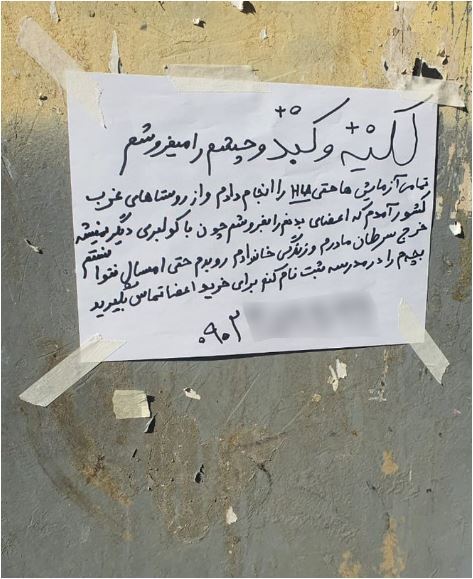 کلیه O+ و کبد O+ و چشمم را میفروشم
تمامی آزمایش ها حتی HLA را انجام دادم و از روستاهای غرب
کشور آمدم که اعضای بدنم را بفروشم چون با کولبری دیگر نمیشه
خرج سرطان مادرم و زندگی خانوادم رو بدم حتی امسال نتوانستم
بچم را در مدرسه ثبت نام کنم برای خرید اعضا تماس بگیرید
۰۹۰۲